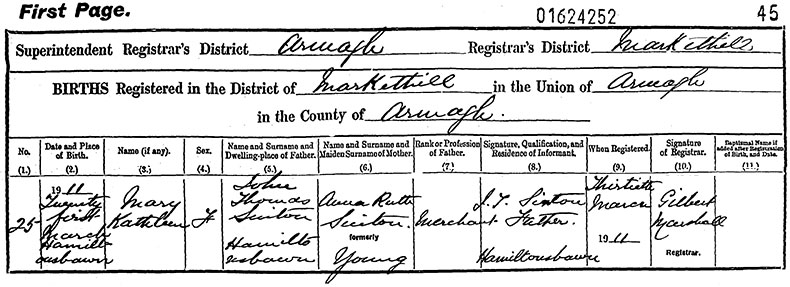 First Page. 01624252 45
Superintendent Registrar's District Armagh Registrar's District Markethill
BIRTHS Registered in the District of Markethill in the Union of Armagh
in the County of Armagh.
No. Date and Place of Birth. Name (if any). Sex. Name and Surname and Dwelling-place of Father. Name and Surname and Maiden Surname of Mother. Rank or Profession of Father. Signature, Qualification, and Residence of Informant. When Registered. Signature of Registrar. Baptismal Name if added after Registration of Birth, and Date.
(1.) (2.) (3.) (4.) (5.) (6.) (7.) (8.) (9.) (10.) (11.)
25
1911
Twenty
first
March
Hamilto
nsbawn
Mary
Kathleen
F
John
Thomas
Sinton
Hamilto
nsbawn
Anna Ruth
Sinton.
formerly
Young
Merchant
J. T. Sinton
Father.
Hamiltonsbawn
Thirtieth
March
1911
Gilbert
Marshall
Registrar.